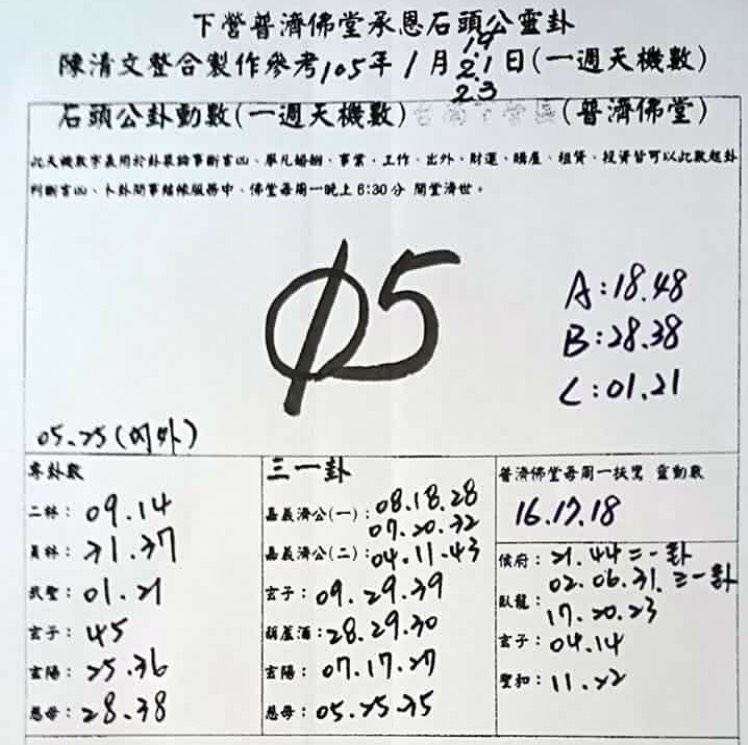 下營普濟佛堂承恩石頭公靈卦
陳清文整合製作參考105年1月19.21.23日(一週天機數)
石頭公卦動數(一週天機數)台南下營區(普濟佛堂)
此天機數字表用於卦象論事斷吉凶、舉凡婚姻、事業、工作、出外、財運、購屋、租賃、投資皆可以此數起卦
判斷吉凶、卜卦問事結緣服務中、佛堂每周一晚上6:30分 開堂濟世。
05
A:18.48
B:28.38
C:01.21
05.25(內外)
專卦數
二林:09.14
員林:21.37
武聖:01.21
玄子:45
玄陽:25.36
慈母:28.38
三一卦
嘉義濟公(一):08.18.28
07.20.32
嘉義濟公(二):04.11.43
玄子:09.29.39
葫蘆酒:28.29.30
玄陽:07.17.27
慈母:05.25.35
普濟佛堂每周一扶鸞 靈動數
16.17.18
侯府:21.44二一卦
02.06.31.三一卦
臥龍:17.20.23
玄子:04.14
聖和:11.22